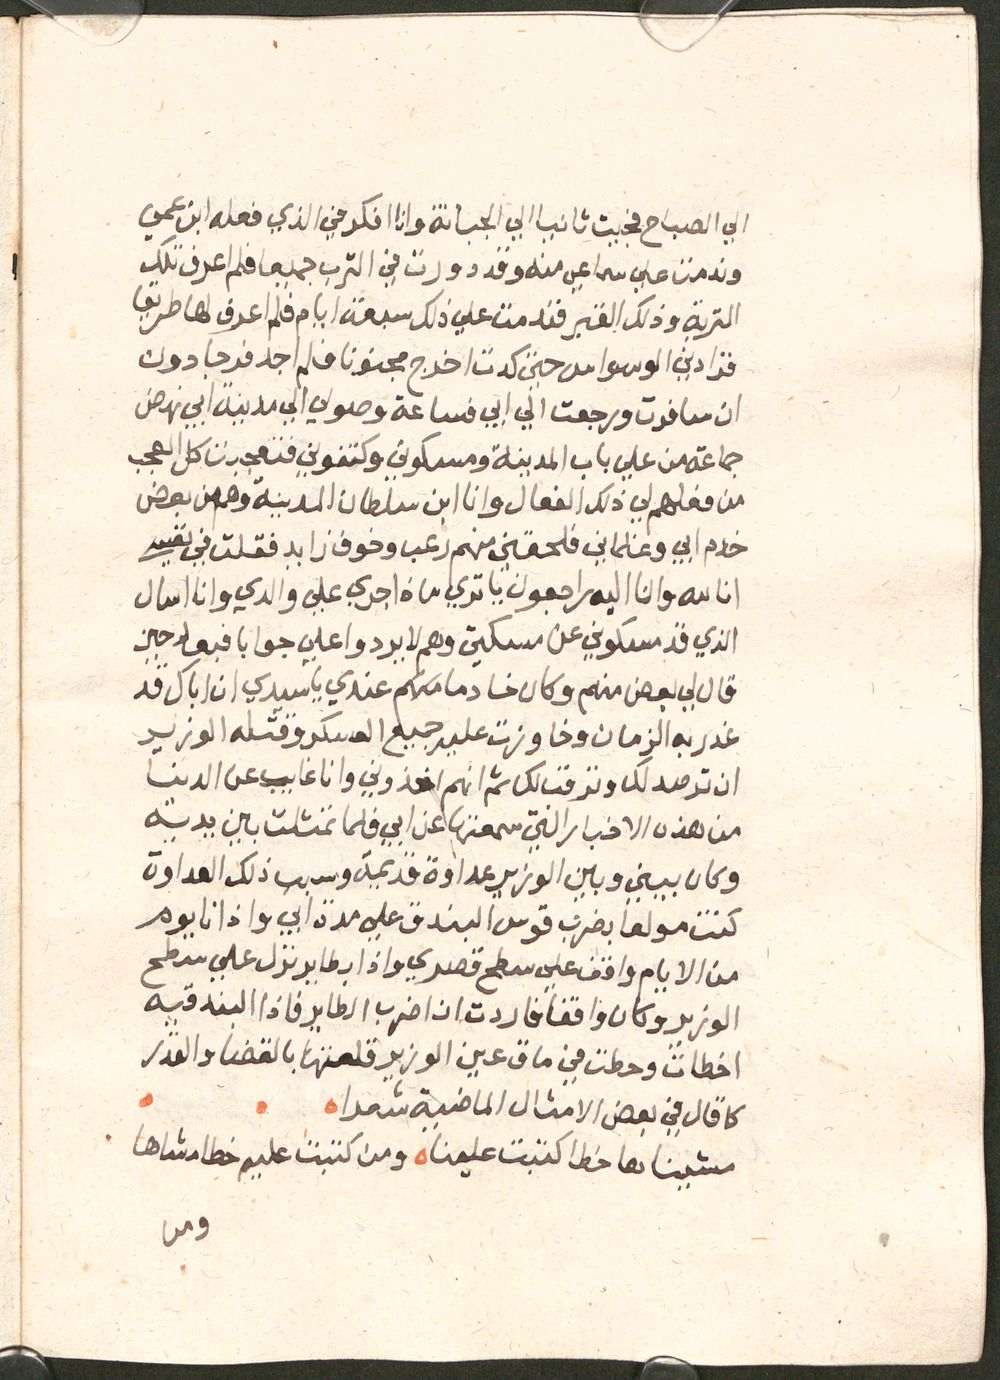 الي الصباح فجيت ثانيا الي الجبانة وانا افكر في الذي فعله ابن عمي
وندمت علي سماعي منه وقد دورت في الترب جميعا فلم اعرف تلك
التربة وذلك القبر فندمت علي ذلك سبعة ايام فلم اعرف لها طريقا
فزادني الوسواس حتي كدت اخرج مجنونا فلم اجد فرجا دون
ان سافرت ورجعت الي ابي فساعة وصولي الي مدينة ابي نهض
جماعة من علي باب المدينة ومسكوني وكتفوني فتعجبت كل العجب
من فعلهم لي ذلك الفعال وانا ابن سلطان المدينة وهم من بعض
خدام ابي وغلماني فلحقني منهم رعب وخوف زايد فقلت في نفسي
انا لله وانا اليه راجعون يا تري ماذا جري علي والدي وانا اسال
الذي قد مسكوني عن مسكتي وهم لا يردوا علي جوابا فبعد حين
قال لي بعض منهم وكان خادما منهم عندي يا سيدي ان اباك قد
غدر به الزمان وخاونت عليه جميع العسكر وقتله الوزير
ان ترصد لك ونزقت لك ثم انهم اخذوني وانا غايب عن الدنيا
من هذه الاخبار التي سمعتها عن ابي فلما تمثلت بين يديه
وكان بيني وبين الوزير عداوة قديمة وسبب ذلك العداوة
كنت مولعا بضرب قوس البندق علي مدة ابي واذ انا يوم
من الايام واقف علي سطح قصري واذا بطاير نزل علي سطح
الوزير وكان واقفا فاردت ان اضرب الطاير فاذا البندقيه
اخطات وحطت في ماق عين الوزير قلعتها بالقضا والقدر
كما قال في بعض الامثال الماضية شعرا
مشيناها خطا كتبت علينا ومن كتبت عليه خطا مشاها
ومن